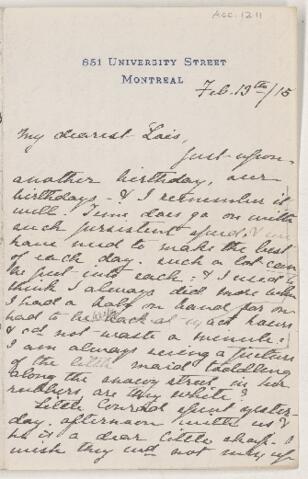 ACC. 1211
851 UNIVERSITY STREET
MONTREAL
Feb. 13th/15
My dearest Lois,
Just upon
another birthday, our
birthdays, - & I remember it
well. Time does go on with
such persistent speed & we
have need to make the best
of each day. such a lot can
be put into each: & I used to
think I always did more when
I had a baby on hand for one
had to be back at such hours
& cd not waste a minute.
I am always seeing a picture
of the little maid toddling
along the snowy street in her
rubbers, are they white?
Little Conrad spent yester-
day afternoon with us &
he is a dear little chap. I
wish they wd not